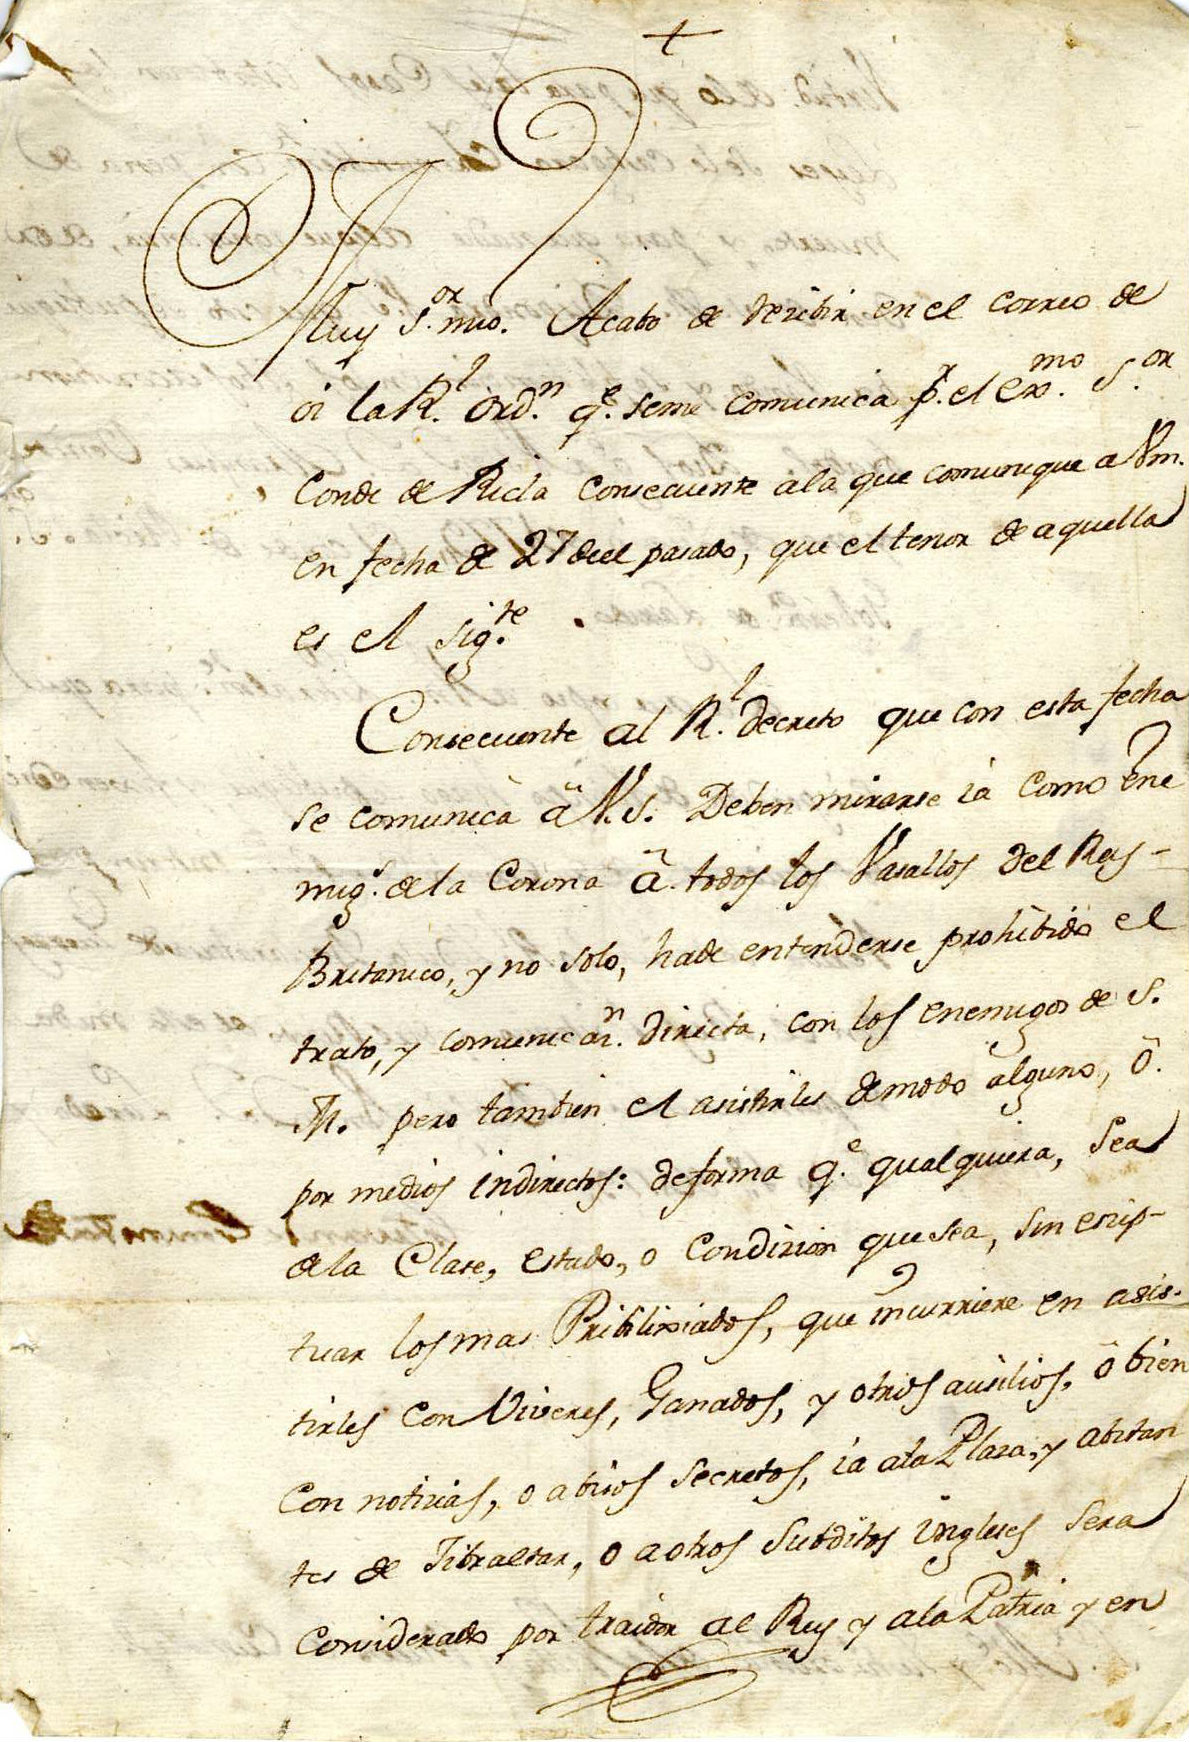 +
Muy S.or mio. Acabo de Rezibir en el correo de
oi la R.l ord.n q.e seme comunica p.r el Exmo. S.or
Conde de Ricla Consecuente ala que comunique a Vm.
en fecha de 27 deel pasado, que el tenor de aquella
es el sig.te
Consecuente al R.l decreto que con esta fecha
se comunica â V.S. Deben mirarse ia como ene
mig.s de la Corona â todos los Vasallos del Rey-
Britanico, y no solo, hade entenderse prohibido el
trato, y comunicaz.n directa, con los enemigos de S.
M. pero tambien el asistirles demodo alguno, ô
por medios indirectos: deforma q.e qualquiera, sea
dela Clase, estado, o Condizion que sea, sin esep-
tuar los mas Pribilixiados, que incurriere en asis-
tirles con Viveres, Ganados, y otros ausilios, ô bien
con notizias, o abisos secretos, ia ala Plaza, y abitan
tes de Jibraltar, o aotros Subditos ingleses sera
considerado por traidor al Rey y ala Patria y en